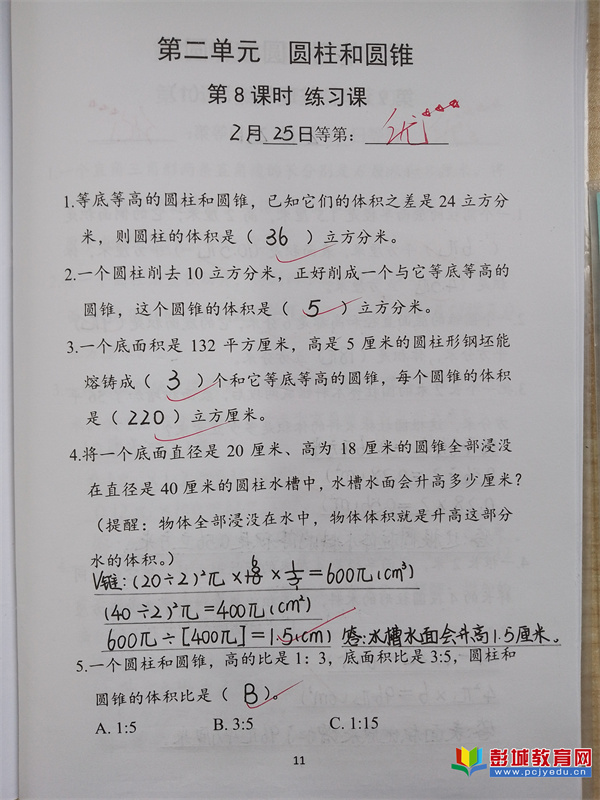 第二单元 圆柱和圆锥
第8课时 练习课
2月 25日等第: 优
1.等底等高的圆柱和圆锥,已知它们的体积之差是24立方分
米,则圆柱的体积是( 36 )立方分米。
2.一个圆柱削去10立方分米,正好削成一个与它等底等高的
圆锥,这个圆锥的体积是( 5 )立方分米。
3.一个底面积是132平方厘米,高是5厘米的圆柱形钢坯能
熔铸成( 3 )个和它等底等高的圆锥,每个圆锥的体积
是( 220 )立方厘米。
4.将一个底面直径是20厘米、高为18厘米的圆锥全部浸没
在直径是40厘米的圆柱水槽中,水槽水面会升高多少厘米?
(提醒:物体全部浸没在水中,物体体积就是升高这部分
水的体积。)
V锥:(20÷2)²π×18×1/3=600π(cm³)
(40÷2)²π=400π(cm²)
600π÷[400π]=1.5(cm) 答:水槽水面会升高1.5厘米。
5.一个圆柱和圆锥,高的比是1:3,底面积比是3:5,圆柱和
圆锥的体积比是( B )。
A. 1:5 B. 3:5 C. 1:15
11
彭城教育网
www.pcjyedu.cn